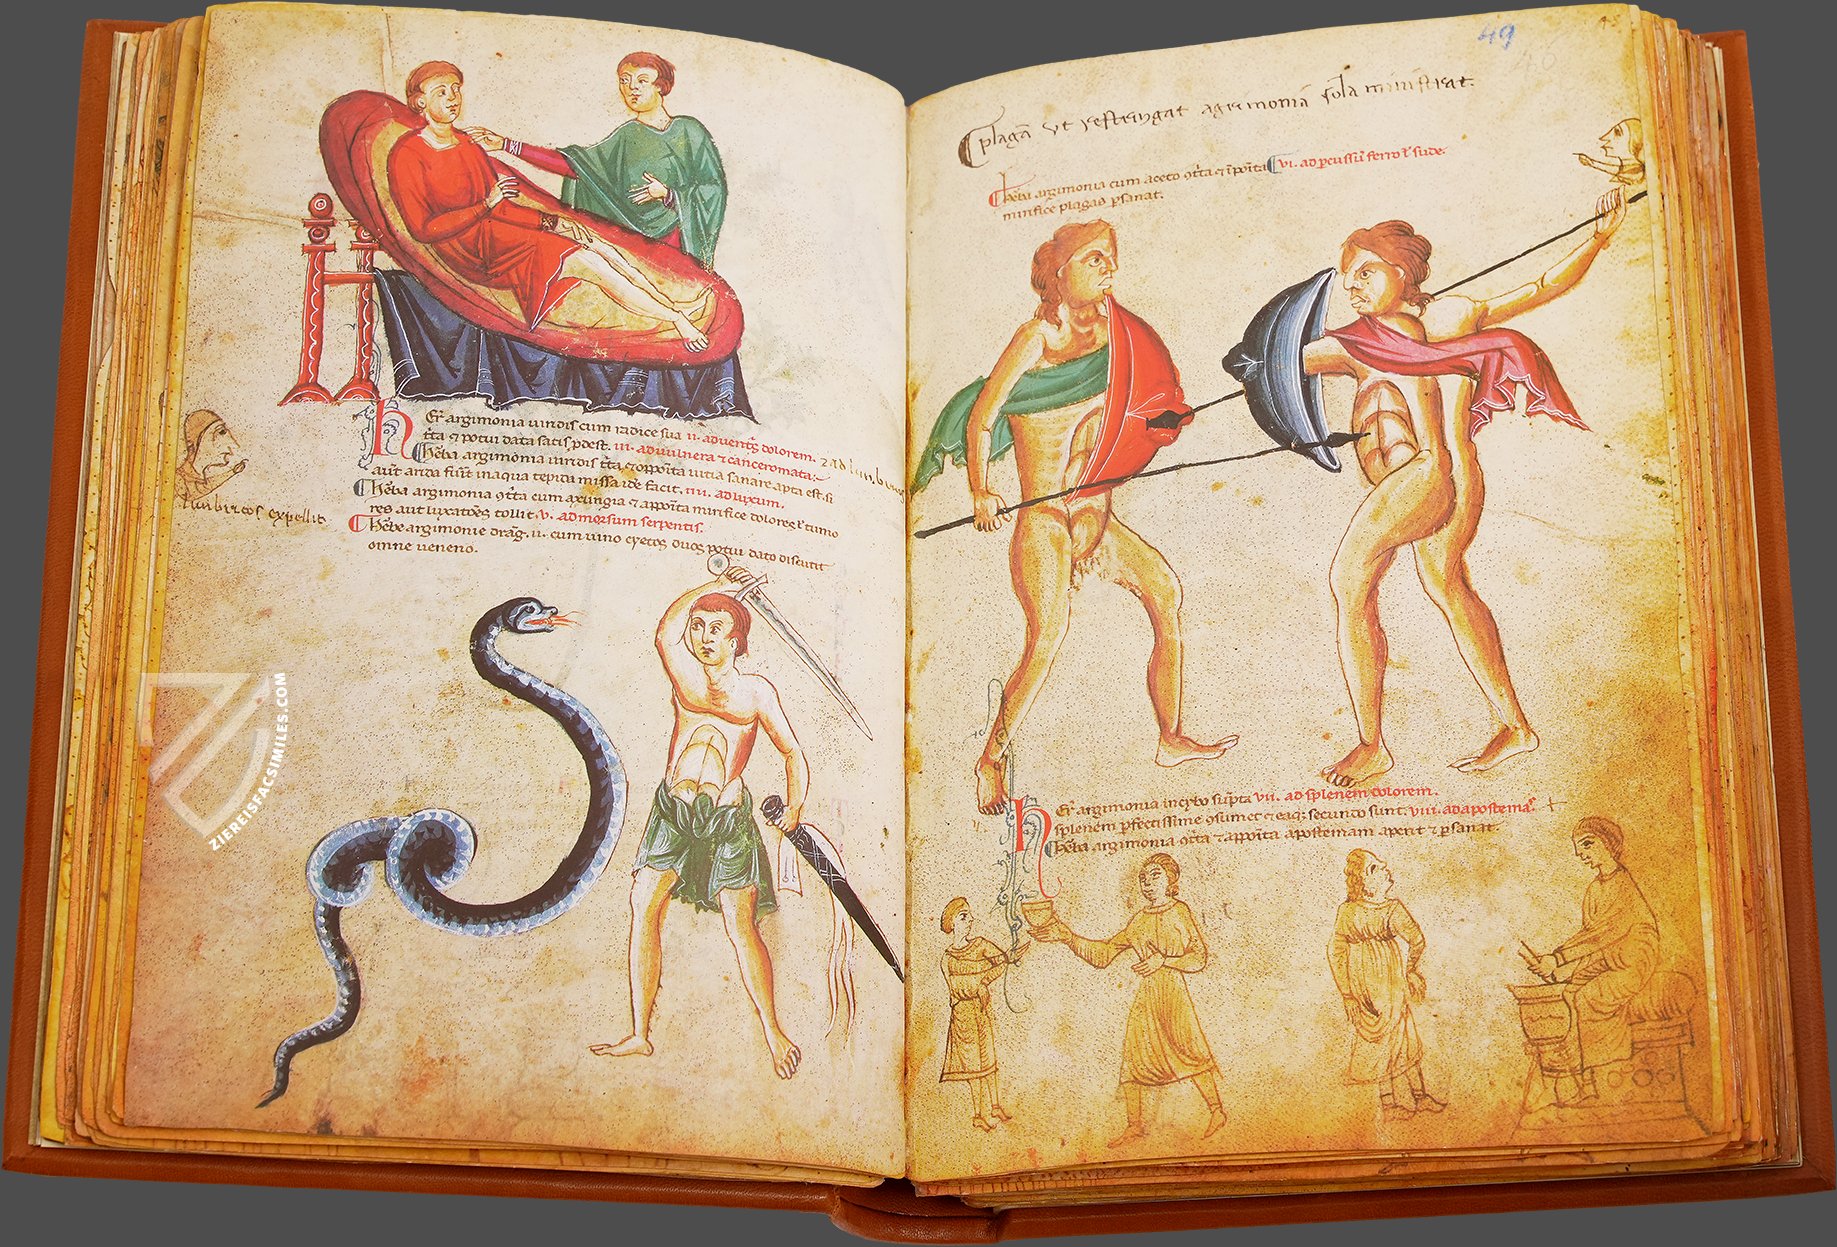 hEr argimonia uiridis cum radice sua ii. ad uent̃s dolorem.
t̃ta ⁊ potui data satis p̱dest. iii. ad uulnera ⁊ canceromata.
hẽba argimonia uiridis t̃ta ⁊ oppoĩta uitia sanare apta est. si
aut̃ arida fuĩt in aqua tepida missa idẽ facit. iiii. ad luxum.
hẽba argimonia ɔt̃ta cum axungia ⁊ appoĩta mirifice dolores ł tumo
res aut luxatoẽs tollit. v. ad morsum serpentis.
hẽbe argimonie drãg. ii. cum uino cyetos duos potui dato discutit
omne ueneno.
lunbricos expellit
49
46
plagã vt restringat agrimoniã sola ministrat.
hẽbi argimonia cum aceto ɔt̃ta ⁊ ĩpoĩta vi. ad p̱cussũ ferro ł sude.
mirifice plagas p̱sanat.
hEr argimonia in cybo sũpta vii. ad splenem dolorem.
splenem p̱fectissime ɔsumet ⁊ eaq; secundo sunt viii. ad apostema
hẽba argimonia ɔt̃ta ⁊ appoĩta apostemam aperit ⁊ p̱sanat.
ZIEREISFACSIMILES.COM